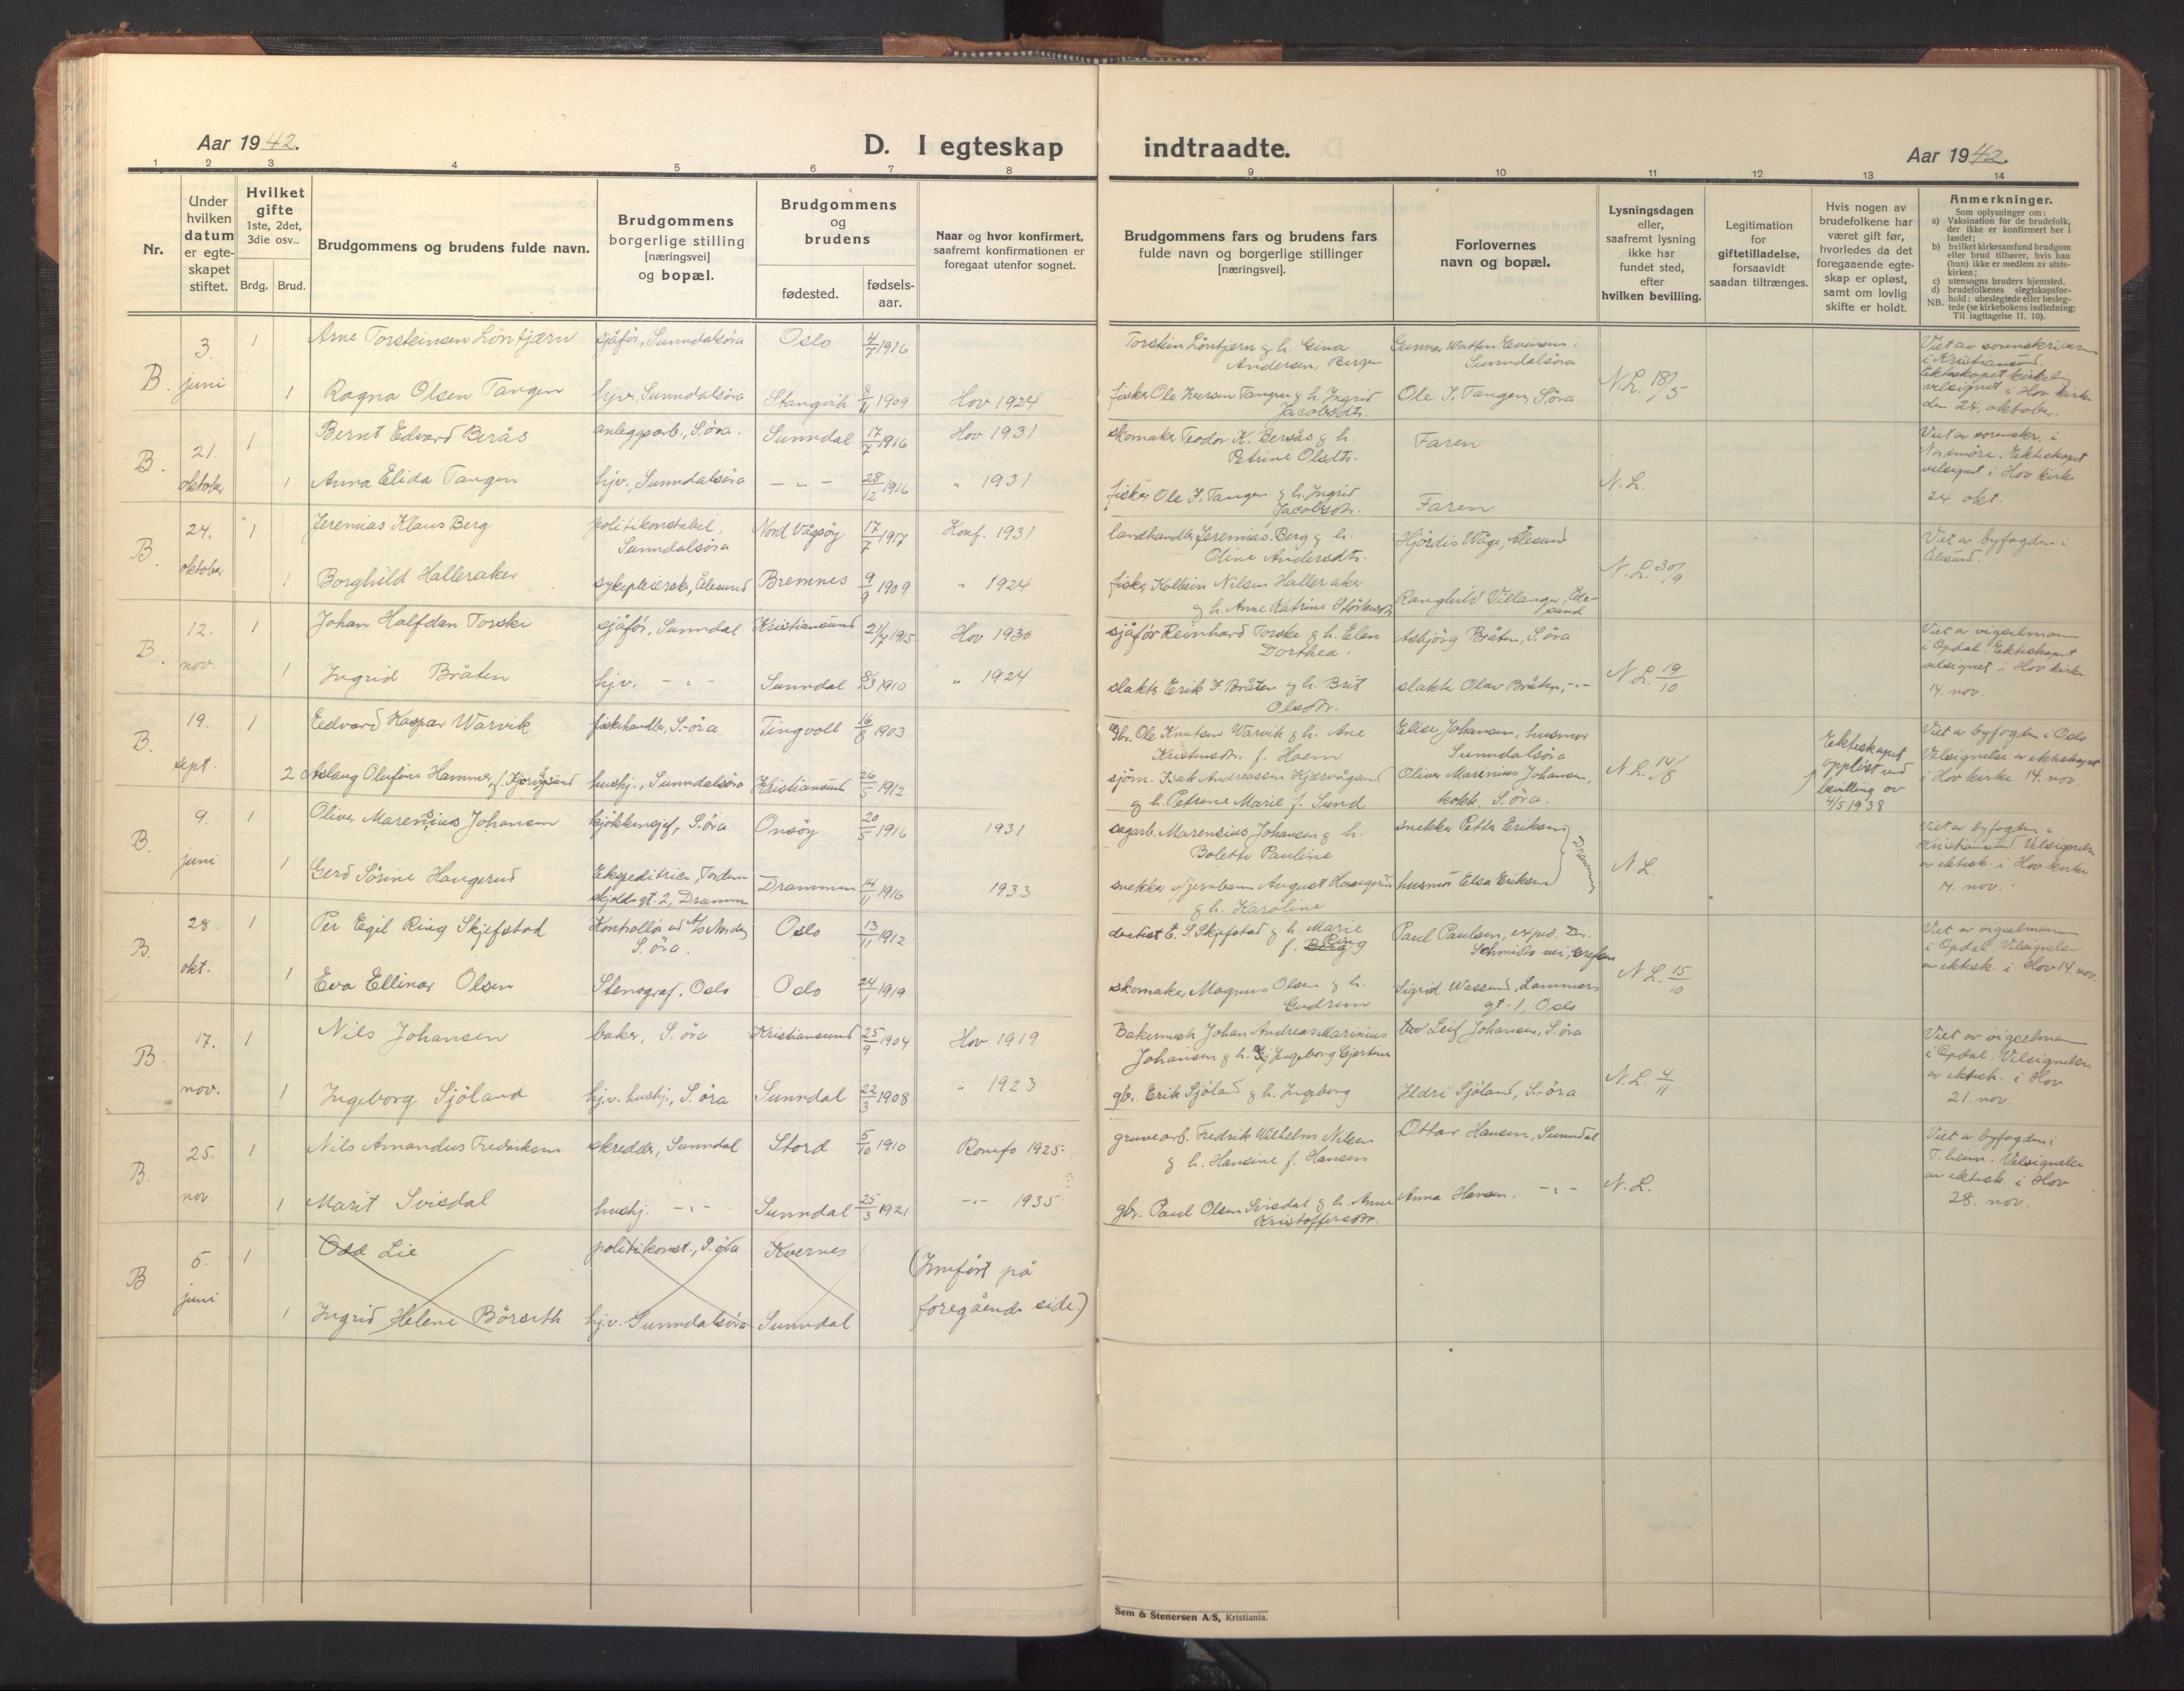 Aar 1942.
D. I egteskap
indtraadte.
Aar 1942.
1 2 3 4 5 6 7 8
9 10 11 12 13 14
Nr.
Under hvilken datum er egte-skapet stiftet.
Hvilket gifte 1ste, 2det, 3die osv..
Brdg. Brud.
Brudgommens og brudens fulde navn.
Brudgommens borgerlige stilling [næringsvei] og bopæl.
Brudgommens og brudens
fødested.
fødsels-aar.
Naar og hvor konfirmert, saafremt konfirmationen er foregaat utenfor sognet.
Brudgommens fars og brudens fars fulde navn og borgerlige stillinger [næringsvei].
Forlovernes navn og bopæl.
Lysningsdagen eller, saafremt lysning ikke har fundet sted, efter hvilken bevilling.
Legitimation for giftetilladelse, forsaavidt saadan tiltrænges.
Hvis nogen av brudefolkene har været gift før, hvorledes da det foregaaende egte-skap er opløst, samt om lovlig skifte er holdt.
Anmerkninger.
Som oplysninger om:
a) Vaksination for de brudefolk, der ikke er konfirmert her i landet;
b) hvilket kirkesamfund brudgom eller brud tilhører, hvis han (hun) ikke er medlem av stats-kirken;
c) utensogns bruders hjemsted.
d) brudefolkenes slegtskapsfor-hold: ubeslegtede eller besleg-tede (se kirkebokens indledning: Til iagttagelse II. 10).
NB.
B. 3. juni
1 Arne Torsteinsen Löntjærn sjåför, Sunndalsöra Oslo 4/7 1916
Torstein Löntjern g. h. Gina Andersen, Bergen
Gunnar Watten Evensen, Sunndalsöra
1 Ragna Olsen Tangen hjv., Sunndalsöra Stangvik 8/11 1909 Hov 1924
fisker Ole Iversen Tangen g. h. Ingrid Jacobsdtr.
Ole I. Tangen, S.öra
N.L. 18/5
Viet av sorenskriveren i Kristiansund. Ekteskapet kirkelig velsignet i Hov kirke den 24. oktober.
B. 21. oktober
1 Bernt Edvard Berås anleggsarb., S.öra. Sunndal 17/7 1916 Hov 1931
skomaker Teodor K. Bersås g. h. Petrine Olsdtr.
Faren
1 Anna Elida Tangen hjv., Sunndalsöra - " - 28/12 1916 " 1931
fisker Ole I. Tangen g. h. Ingrid Jacobsdtr.
Faren
N.L.
Viet av sorenskr. i Nordmöre. Ekteskapet velsignet i Hov kirke 24. okt.
B. 24. oktober
1 Jeremias Klaus Berg politikonstabel, Sunndalsöra Nord Vågsöy 17/7 1917 Konf. 1931
landhandler Jeremias Berg g. h. Oline Andersdtr.
Hjördis Våge, Ålesund
1 Borghild Halleraker sykepleierske, Ålesund Bremnes 9/9 1909 " 1924
fisker Kolbein Nilsen Halleraker g. h. Anne Katrine
Ranghild Villanger, Ålesund
N.L. 30/9
Viet av byfogden i Ålesund.
B. 12. nov.
1 Johan Halfdan Torske sjåför, Sunndal Kristiansund 21/7 1915 Hov 1930
sjåför Reinhard Torske g. h. Elen Dorthea.
Asbjörg Bråten, S.öra
1 Ingrid Bråten hj.v. - " - Sunndal 8/3 1910 " 1924
slakter Erik I. Bråten g. h. Brit Olsdtr.
slakter Olav Bråten, - " -
N.L. 19/10
Viet av vigselmann i Opdal. Ekteskapet velsignet i Hov kirke 14. nov.
B. 19. sept.
1 Edvard Kaspar Warvik fiskehandler, S.-öra Tingvoll 16/8 1903
gbr. Ole Knutsen Warvik g. h. Ane Kristensdtr. f. Hoem
Elise Johansen, husmor Sunndalsöra
2 Aslaug Olufine Hammer, f. Kjærvågsund hushj., Sunndalsöra Kristiansund 26/5 1912
sjöm. Isak Andreassen Kjærvågsund g. h. Petrene Marie f. Sund
Oliver Marenius Johansen, kokk, S.öra.
N.L. 14/8
Ekteskapet opplöst ved bevilling av 4/5 1938
Viet av byfogden i Oslo. Velsignelse av ekteskapet i Hov kirke 14. nov.
B. 9. juni
1 Oliver Marensius Johansen kjökkensjef, S.öra Onsöy 20/5 1916 1931
sagarb. Marensius Johansen g. h. Bolette Pauline
snekker Petter Eriksen
1 Gerd Sörine Haugerud Ekspeditrise, Tordenskjoldsgt. 2, Drammen Drammen 14/11 1916 1933
snekker August Haugerud g. h. Karoline
husmor Elsa Eriksen
Drammen
N.L.
Viet av byfogden i Kristiansund. Velsignelse av ektesk. i Hov kirke 14. nov.
B. 28. okt.
1 Per Egil Ring Skjefstad Kontrollör ved A/s Nordag S.öra. Oslo 13/11 1912
dentist E. S. Skjefstad g. h. Marie f. Berg Ring
Paul Paulsen, exped. Dr. Schmidts vei, Grefsen
1 Eva Ellinor Olsen Stenograf, Oslo Oslo 24/1 1919
skomaker Magnus Olsen g. h. Gudrun
Sigrid Wessund, Lammers gt. 1, Oslo
N.L. 15/10
Viet av vigselmann i Opdal. Velsignelse av ektesk. i Hov 14 nov.
B. 17. nov.
1 Nils Johansen baker, S. öra Kristiansund 25/9 1904 Hov 1919
Bakermestr. Johan Andreas Marinius Johansen g. h. Ingeborg Gjertine
Leif Johansen, S.öra
1 Ingeborg Sjöland hj.v. hushj., S.öra Sunndal 22/3 1908 " 1923
gb. Erik Sjöland g. h. Ingeborg
Ildri Sjöland, S.-öra
N.L. 4/11
Viet av vigselmann i Opdal. Velsignelse av ektesk. i Hov 21. nov.
B. 25. nov.
1 Nils Amandus Fredriksen skredder, Sunndal Stord 5/10 1910 Romfo 1925
gruvearb. Fredrik Wilhelm Nilsen g. h. Hansine f. Hansen
Ottar Hansen, Sunndal
1 Marit Svisdal hushj. - " - Sunndal 25/3 1921 - " - 1935
gbr. Paul Olsen Svisdal g. h. Anne Kristoffersdtr.
Anna Hansen, - " -
N.L.
Viet av byfogden i T.heim. Velsignelse av ektesk. i Hov 28. nov.
B 5. juni
1 Odd Lie politikonst., S.öra Kvernes
1 Ingrid Helene Börseth hj.v. Sunndalsöra Sunndal
(Innfört på foregående side)
Sem & Stenersen A/S, Kristiania.